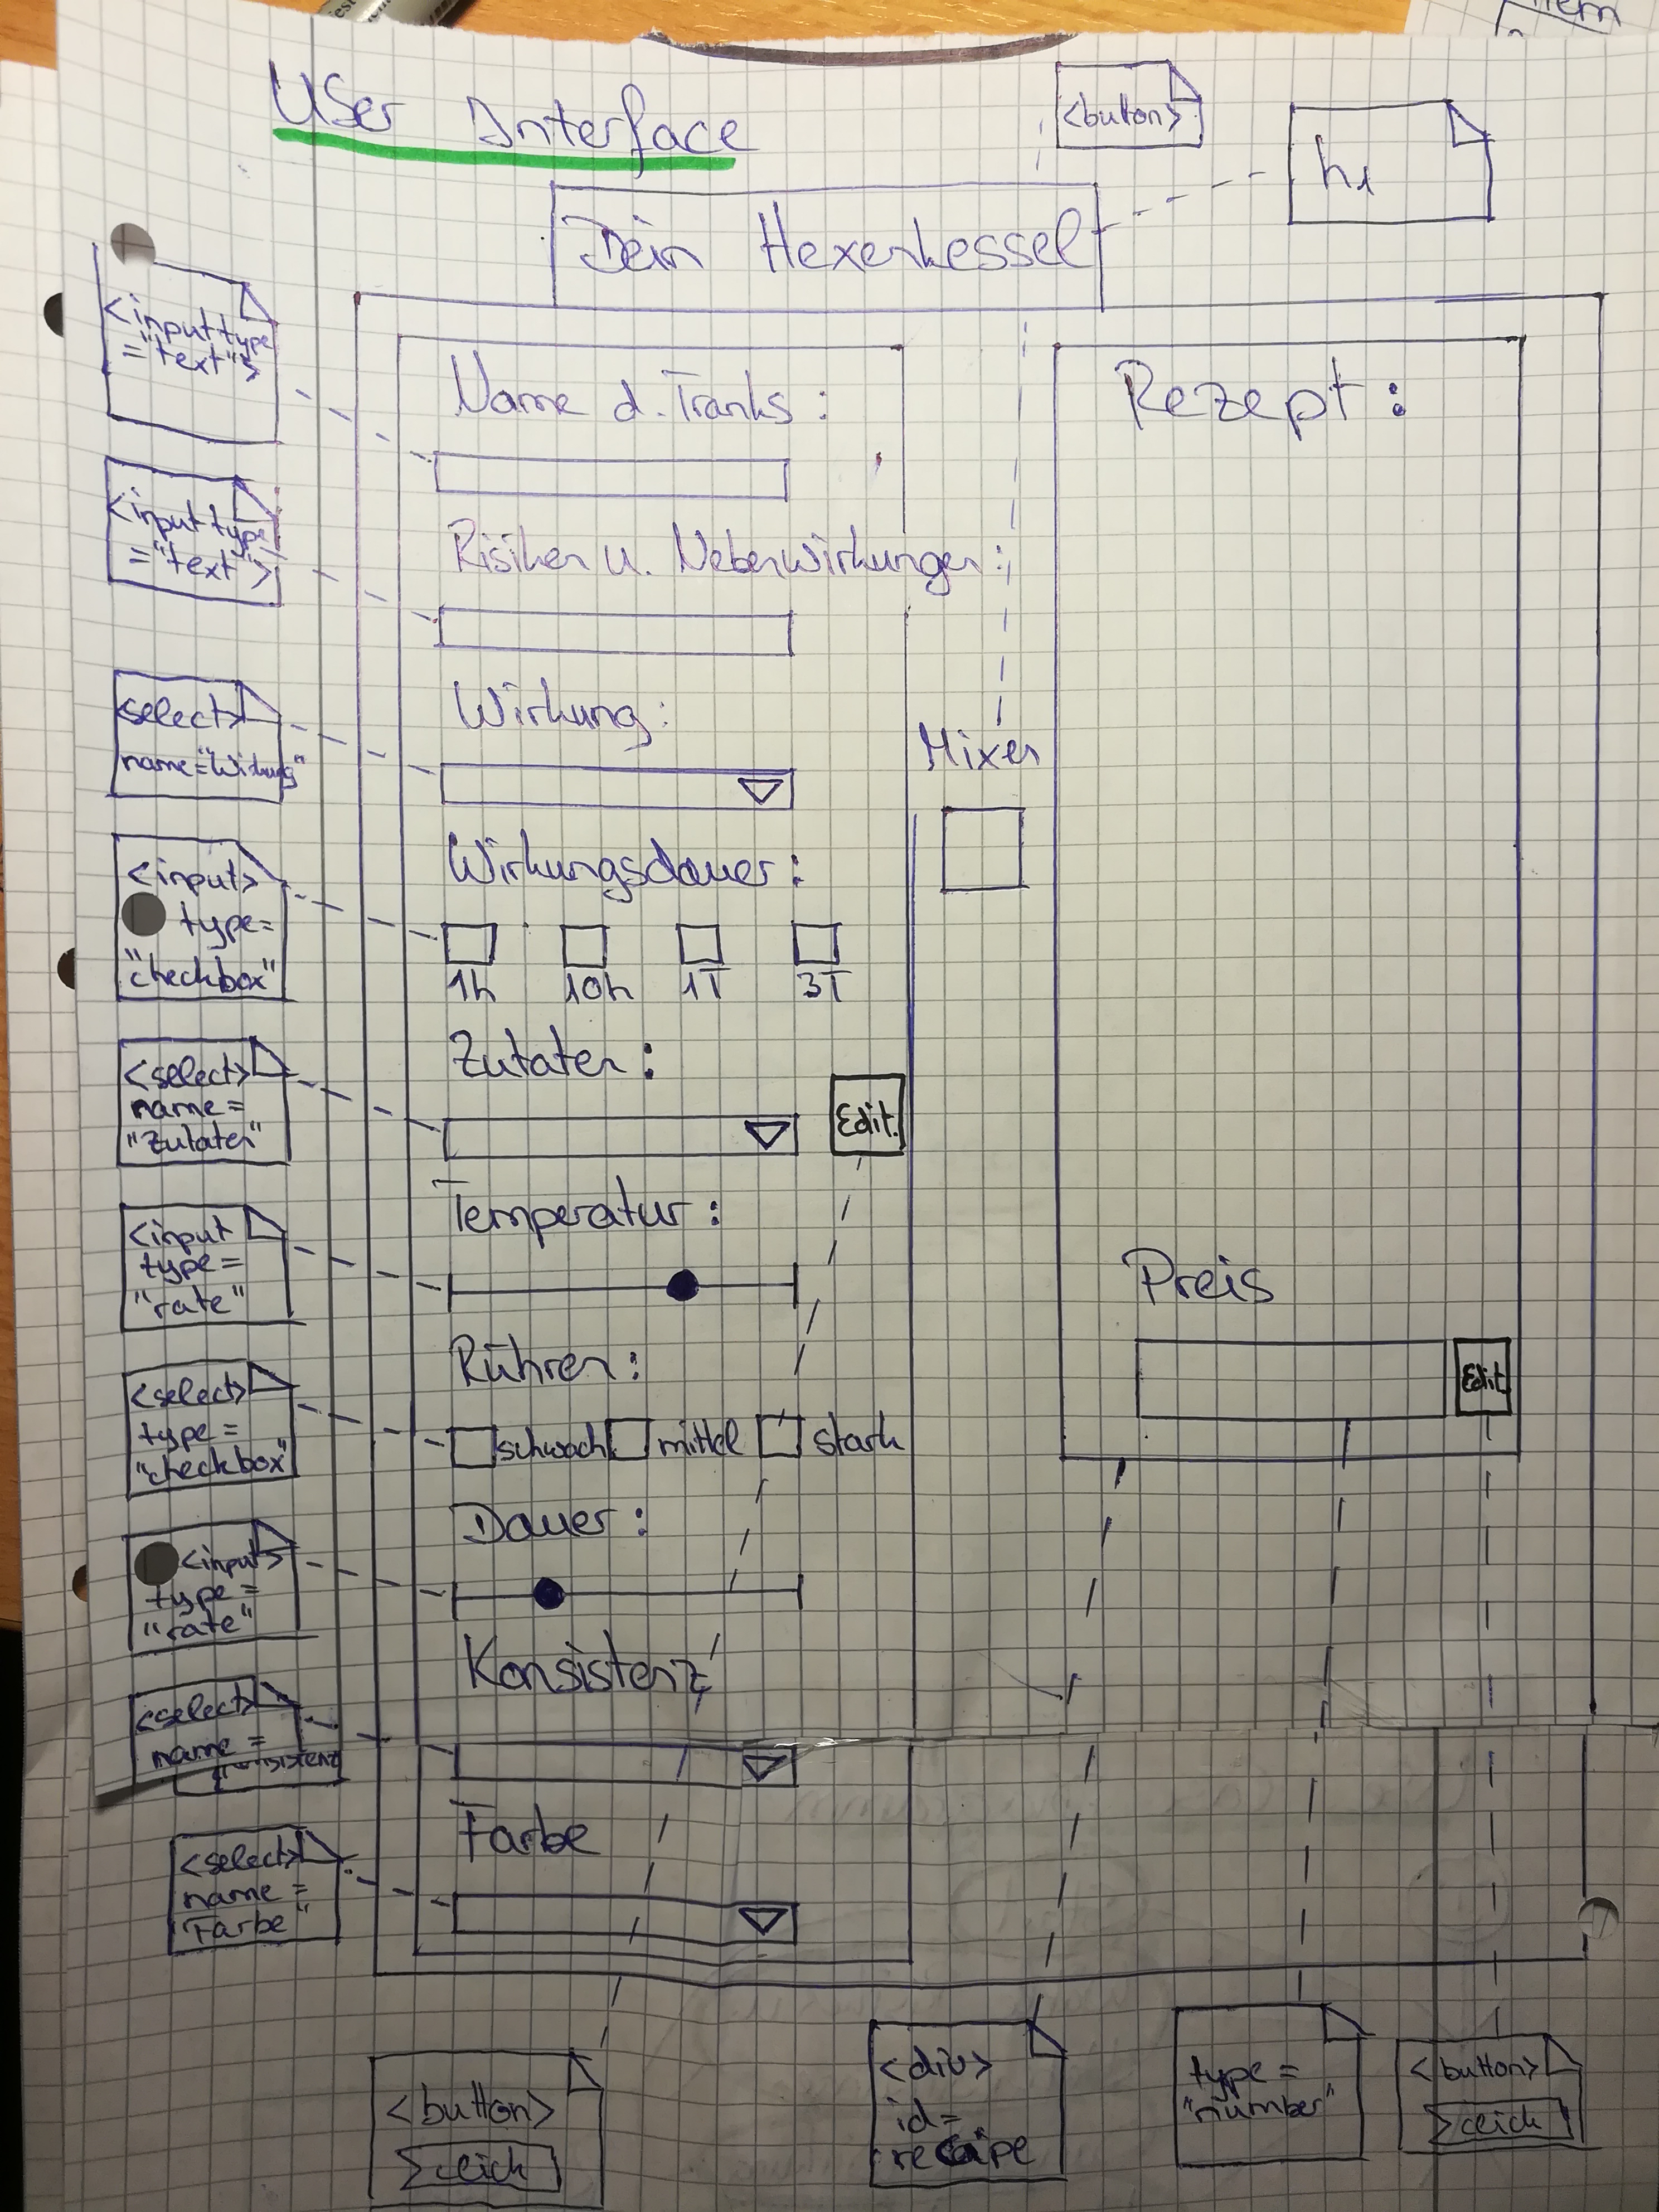 User Interface
<button>
h1
Dein Hexenkessel
<input type
="text">
Name d. Tranks:
Rezept:
<input type
="text">
Risiken u. Nebenwirkungen:
<select>
name="Wirkung"
Wirkung:
Mixen
<input>
type=
"checkbox"
Wirkungsdauer:
1h 10h 1T 3T
<select>
name=
"Zutaten"
Zutaten:
Edit
<input
type=
"rate"
Temperatur:
Preis
Edit
<select>
type=
"checkbox"
Rühren:
schwach mittel stark
<input>
type=
"rate"
Dauer:
<select>
name=
Konsistenz
<select>
name=
"Farbe"
Farbe
<button>
click
<div>
id=
recipe
type=
"number"
<button>
click